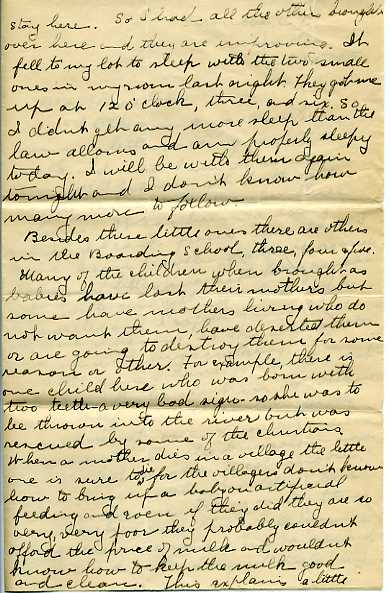 stay here. So I had all the other brought
over here and they are improving. It
fell to my lot to sleep with the two small
ones in my room last night. They got me
up at 12 o'clock, three, and six. So
I didn't get any more sleep than the
law allows and am properly sleepy
today. I will be with them again
tonight and I don't know how
many more to follow
Besides these little ones there are others
in the Boarding School, three, four, five.
Many of the children when brought as
babies have lost their mothers but
some have mothers living who do
not want them, have deserted them
or are going to destroy them for some
reason or other. For example, there is
one child here who was born with
two teeth - a very bad sign - so she was to
be thrown into the river but was
rescued by some of the christians.
When a mother dies in a village the little
one is sure to die for the villagers don't know
how to bring up a baby on artificial
feeding and even if they did they are so
very, very poor they probably couldn't
afford the price of milk and wouldn't
know how to keep the milk good
and clean. This explains a little